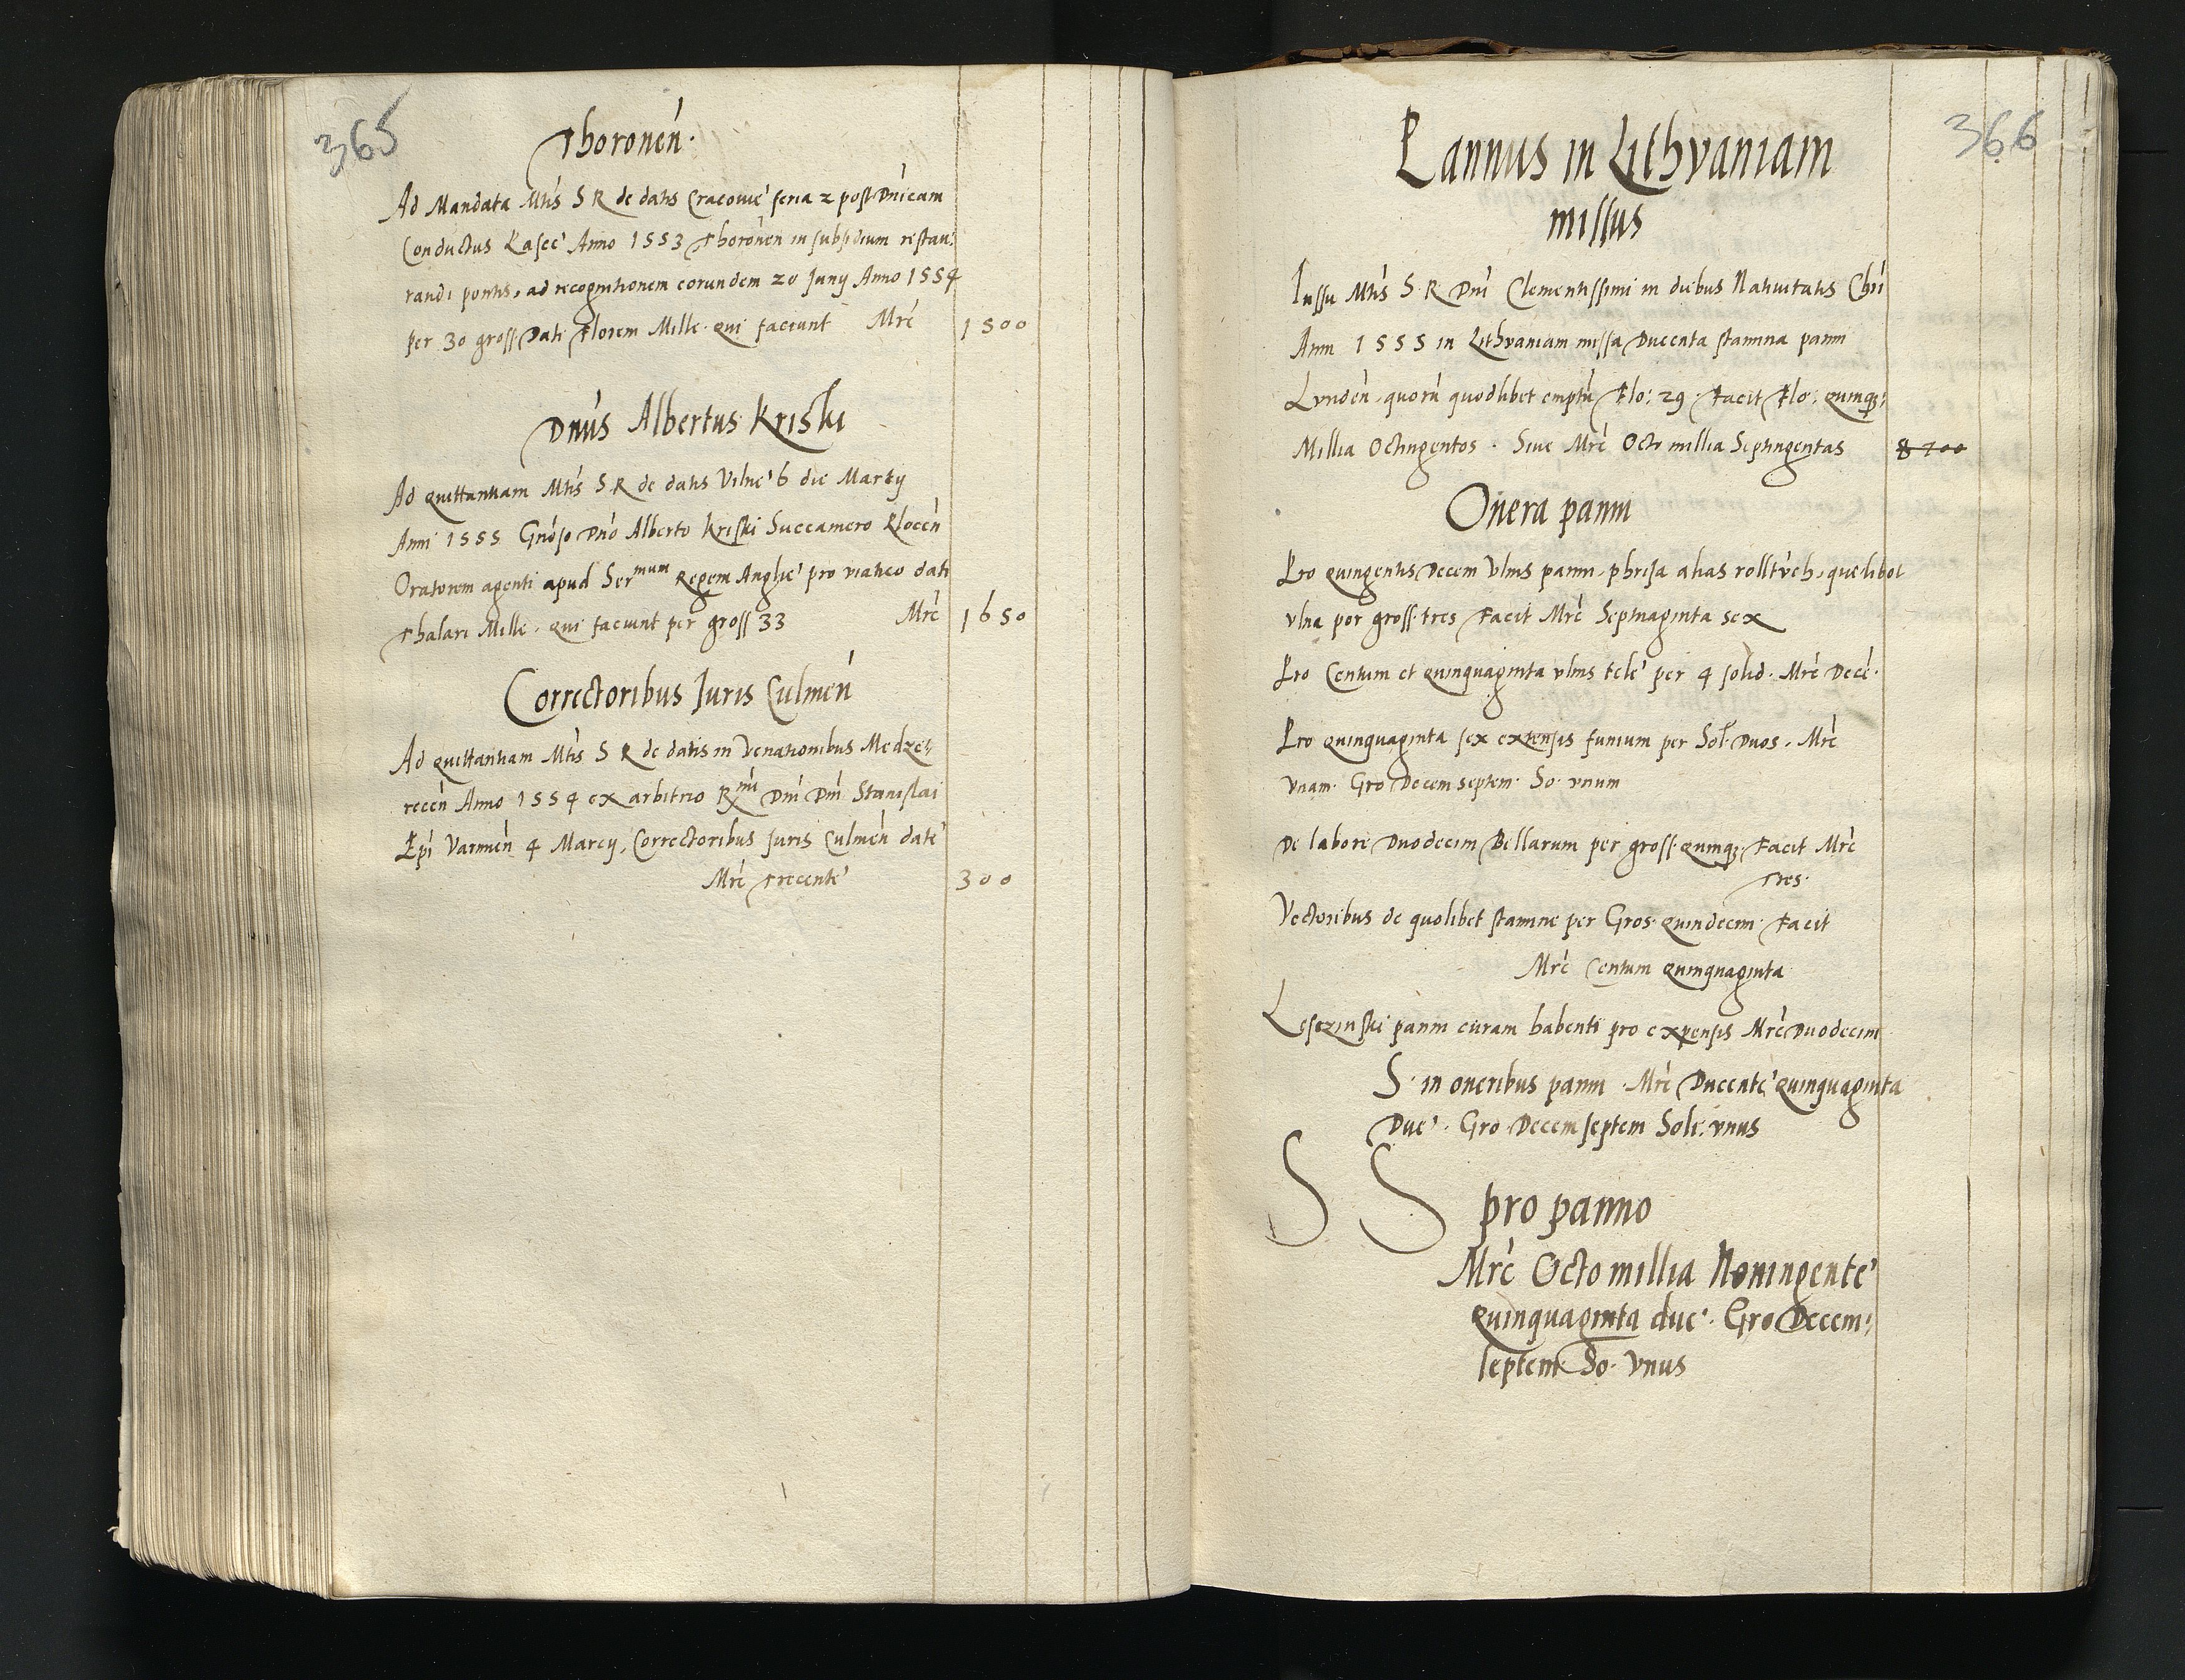 365
Thoronen.
Ad Mandata Mtis S R de datis Cracovie feria 2 post Dnicam
Conductus Pasce Anno 1553 Thoronen in subsidium restau:
randi pontis, ad recognitionem eorundem 20 Juny Anno 1554
per 30 gross Dati Floreni Mille qui faciunt Mrc 1500
Dnus Albertus Kriski
Ad quittantiam Mtis S.R de datis Vilne 6 die Marty
Anni 1555 Gnoso Dno Alberto Kriski Succamero Plocen
Oratorem agenti apud Sermum Regem Anglie pro viatico dati
Thalari Mille. qui faciunt per gross 33 Mrc 1650
Correctoribus Juris Culmen
Ad quittantiam Mtis S R de datis in Venationibus Medze:
recen Anno 1554 ex arbitrio Rmi Dni Dni Stanislai
Epi Varmien 4 Marcy, Correctoribus Juris Culmen date
Mrc Trecente 300
366
Pannus in Lithvaniam
missus
Jussu Mtis S. R Dni Clementissimi in diebus Nativitatis Chri
Anni 1555 in Lithvaniam missa Ducenta stamina panni
Lunden. quoru quodlibet emptu Flo: 29. Facit Flo: quinq:
Millia Octingentos. Sive Mrc Octo millia Septingentas 8700
Onera panni
Pro quingentis Decem Ulnis panni phrisa alias rolltuch, quelibet
ulna per gross. tres Facit Mrc Septuaginta sex
Pro Centum et quinquaginta ulnis tele per 4 solid. Mrc Dece.
Pro quinquaginta sex extensis funium per Sol. Duos. Mrc
Unam. Gro Decem septem. So. unum
De labore Duodecim Bellarum per gross. quinq; Facit Mrc
Tres.
Vectoribus de quolibet stamine per Gros. quindecim. Facit
Mrc Centum quinquaginta
Leszinski panni curam habenti pro expensis Mrc Duodecim
S. in oneribus panni. Mrc Ducente quinquaginta
Due. Gro. Decem septem Soli. unus
S S pro panno
Mrc Octo millia Noningente
quinquaginta due. Gro Decem:
septem So. Unus